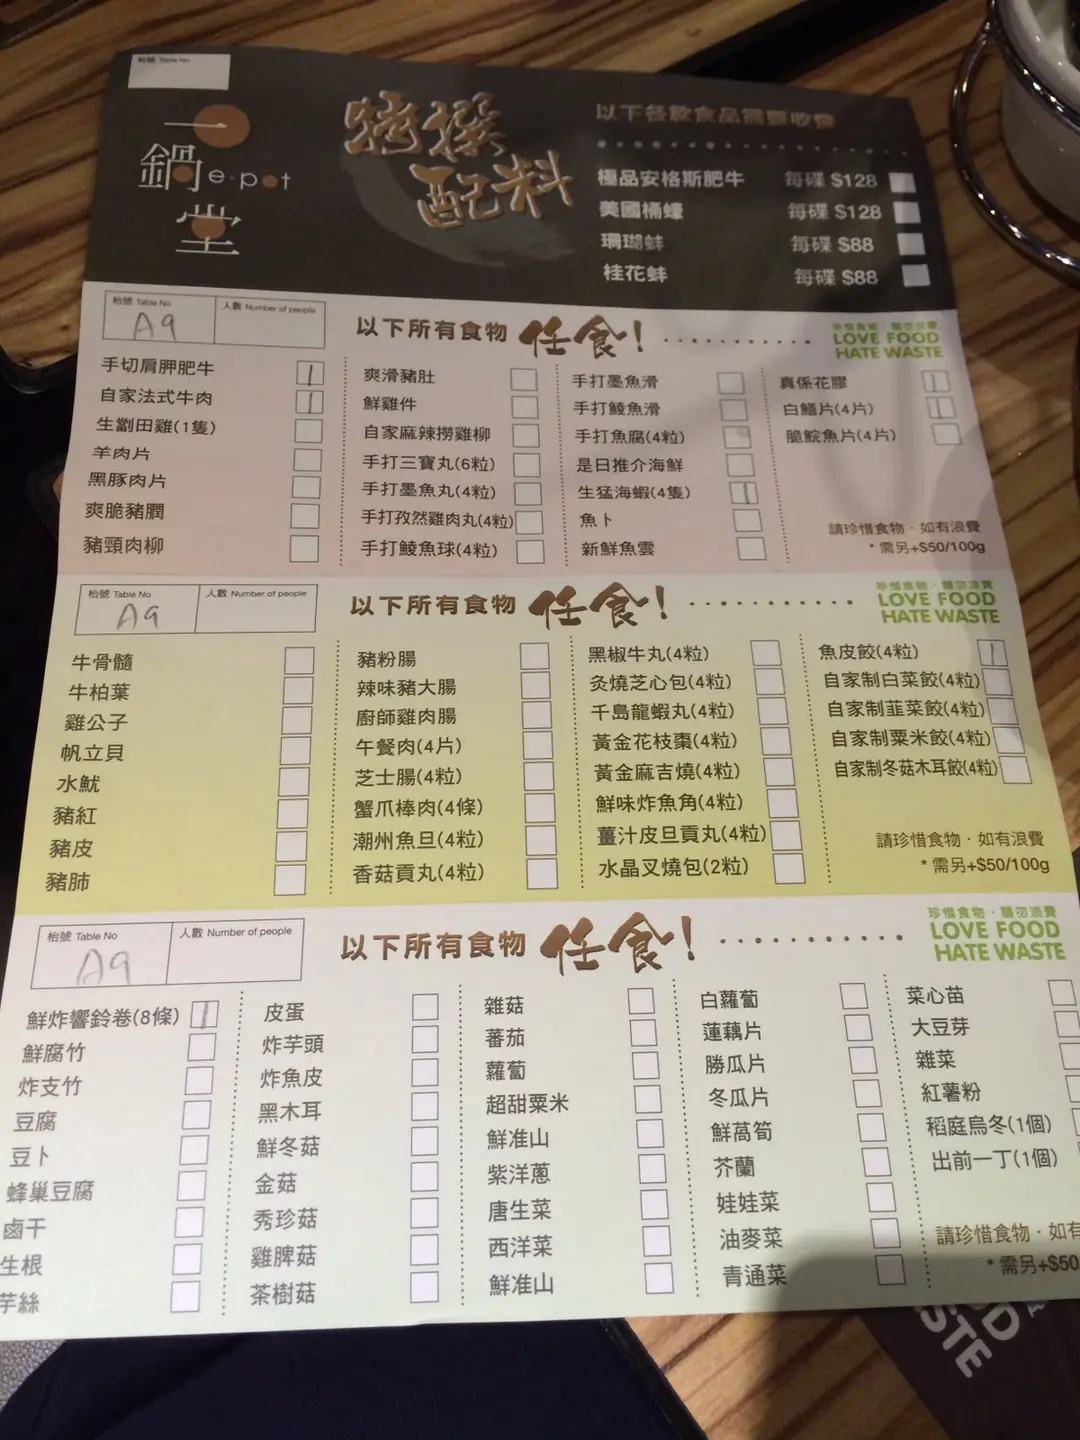 枱號 Table No
一鍋堂
e-pot
特撰配料
以下各款食品需要收費
極品安格斯肥牛 每碟 $128
美國桶蠔 每碟 $128
珊瑚蚌 每碟 $88
桂花蚌 每碟 $88
枱號 Table No 人數 Number of people
A9
以下所有食物 任食!
珍惜食物·請勿浪費
LOVE FOOD
HATE WASTE
手切肩胛肥牛
自家法式牛肉
生劏田雞(1隻)
羊肉片
黑豚肉片
爽脆豬膶
豬頸肉柳
爽滑豬肚
鮮雞件
自家麻辣撈雞柳
手打三寶丸(6粒)
手打墨魚丸(4粒)
手打孜然雞肉丸(4粒)
手打鯪魚球(4粒)
手打墨魚滑
手打鯪魚滑
手打魚腐(4粒)
是日推介海鮮
生猛海蝦(4隻)
魚卜
新鮮魚雲
真係花膠
白鱔片(4片)
脆鯇魚片(4片)
請珍惜食物·如有浪費
* 需另+$50/100g
枱號 Table No 人數 Number of people
A9
以下所有食物 任食!
珍惜食物·請勿浪費
LOVE FOOD
HATE WASTE
牛骨髓
牛柏葉
雞公子
帆立貝
水魷
豬紅
豬皮
豬肺
豬粉腸
辣味豬大腸
廚師雞肉腸
午餐肉(4片)
芝士腸(4粒)
蟹爪棒肉(4條)
潮州魚旦(4粒)
香菇貢丸(4粒)
黑椒牛丸(4粒)
灸燒芝心包(4粒)
千島龍蝦丸(4粒)
黃金花枝棗(4粒)
黃金麻吉燒(4粒)
鮮味炸魚角(4粒)
薑汁皮旦貢丸(4粒)
水晶叉燒包(2粒)
魚皮餃(4粒)
自家制白菜餃(4粒)
自家制韮菜餃(4粒)
自家制粟米餃(4粒)
自家制冬菇木耳餃(4粒)
請珍惜食物·如有浪費
* 需另+$50/100g
枱號 Table No 人數 Number of people
A9
以下所有食物 任食!
珍惜食物·請勿浪費
LOVE FOOD
HATE WASTE
鮮炸響鈴卷(8條)
鮮腐竹
炸支竹
豆腐
豆卜
蜂巢豆腐
鹵干
生根
芋絲
皮蛋
炸芋頭
炸魚皮
黑木耳
鮮冬菇
金菇
秀珍菇
雞脾菇
茶樹菇
雜菇
蕃茄
蘿蔔
超甜粟米
鮮准山
紫洋蔥
唐生菜
西洋菜
鮮准山
白蘿蔔
蓮藕片
勝瓜片
冬瓜片
鮮萵筍
芥蘭
娃娃菜
油麥菜
青通菜
菜心苗
大豆芽
雜菜
紅薯粉
稻庭烏冬(1個)
出前一丁(1個)
請珍惜食物·如有
* 需另+$50